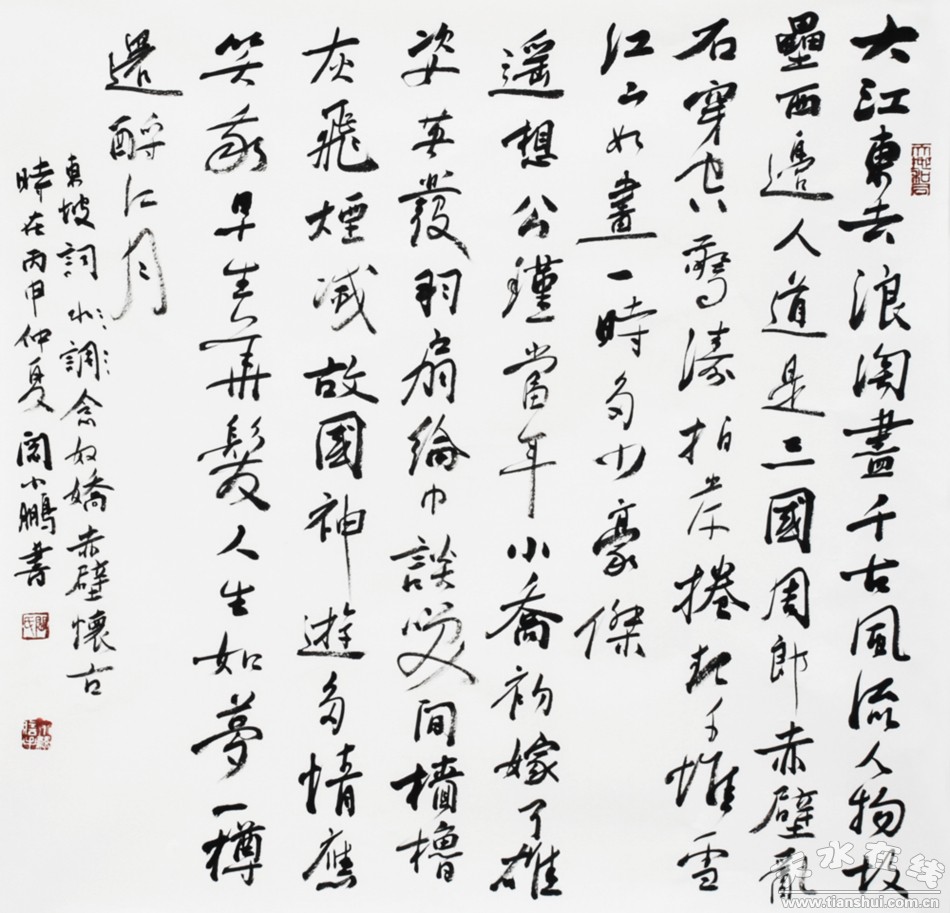 大江東去浪淘盡千古風流人物故
壘西邊人道是三國周郎赤壁亂
石穿空驚濤拍岸捲起千堆雪
江山如畫一時多少豪傑
遥想公瑾當年小喬初嫁了雄
姿英發羽扇綸巾談笑間檣櫓
灰飛煙滅故國神遊多情應
笑我早生華髮人生如夢一樽
還酹江月
東坡詞水調念奴嬌赤壁懷古
時在丙申仲夏閻小鵬書
天水在线
www.tianshui.com.cn